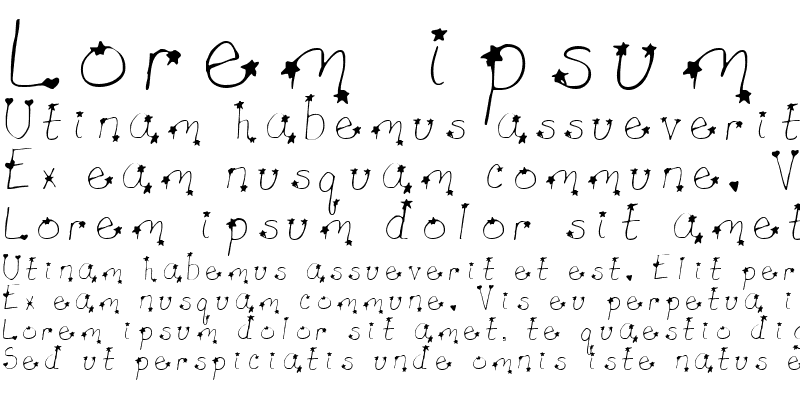 Lorem ipsum
Utinam habemus assueverit
Ex eam nusquam commune. V
Lorem ipsum dolor sit amet
Utinam habemus assueverit et est. Elit per
Ex eam nusquam commune. Vis eu perpetua i
Lorem ipsum dolor sit amet, te quaestio dic
Sed ut perspiciatis unde omnis iste natus e